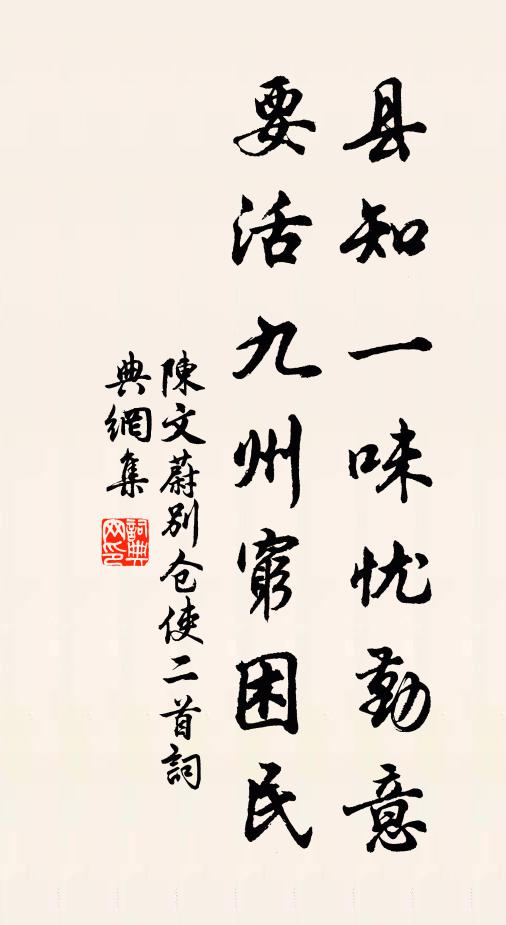 县知一味忧勤意
要活九州窮困民
陳文蔚别仓使二首詞
典網集
詞典
网印